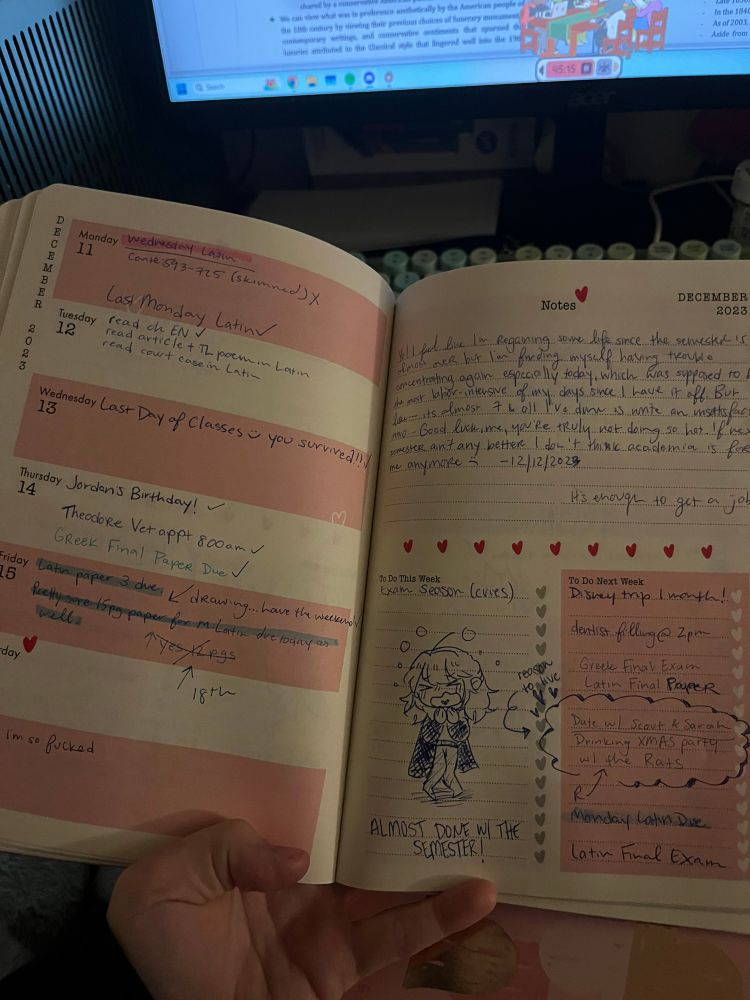 shared by a conservative American
We can view what was in preference aesthetically by the American people of
the 18th century by viewing their previous choices of funerary monuments,
contemporary writings, and conservative sentiments that spurned the
luxuries attributed to the Classical style that lingered well into the
In the 1840
As of 2003,
Aside from
45:15
Search
acer
DECEMBER 2023
Monday
11
Wednesday Latin
Conte: 593-725 (skimmed) X
Last Monday Latin ✓
Tuesday
12
read ch EN ✓
read article + TL poem in Latin
read court case in Latin
Wednesday
13
Last Day of Classes you survived!!!
Thursday
14
Jordan's Birthday! ✓
Theodore Vet appt 800am ✓
Greek Final Paper Due ✓
Friday
15
Latin paper 3 due
drawing... have the weekend
Pretty sure 15pg paper for m Latin due today as
well.
yes 12 pgs
18th
day
I'm so fucked
Notes
DECEMBER
2023
I feel like I'm regaining some life since the semester is
almost over but I'm finding myself having trouble
concentrating again especially today, which was supposed to
the most labor-intensive of my days since I have it off. But
its almost 7 & all I've done is write an
intro. Good luck, me, you're truly not doing so hot. If next
semester ain't any better I don't think academia is for
me anymore :( -12/12/2023
It's enough to get a job
To Do This Week
Exam Season (cries)
reason
to live
ALMOST DONE W/ THE
SEMESTER!
To Do Next Week
Disney trip 1 month!
dentist filling @ 2pm
Greek Final Exam
Latin Final Paper
Date w/ Scout & Sarah
Drinking XMAS party
w/ the Rats
Monday Latin Due
Latin Final Exam